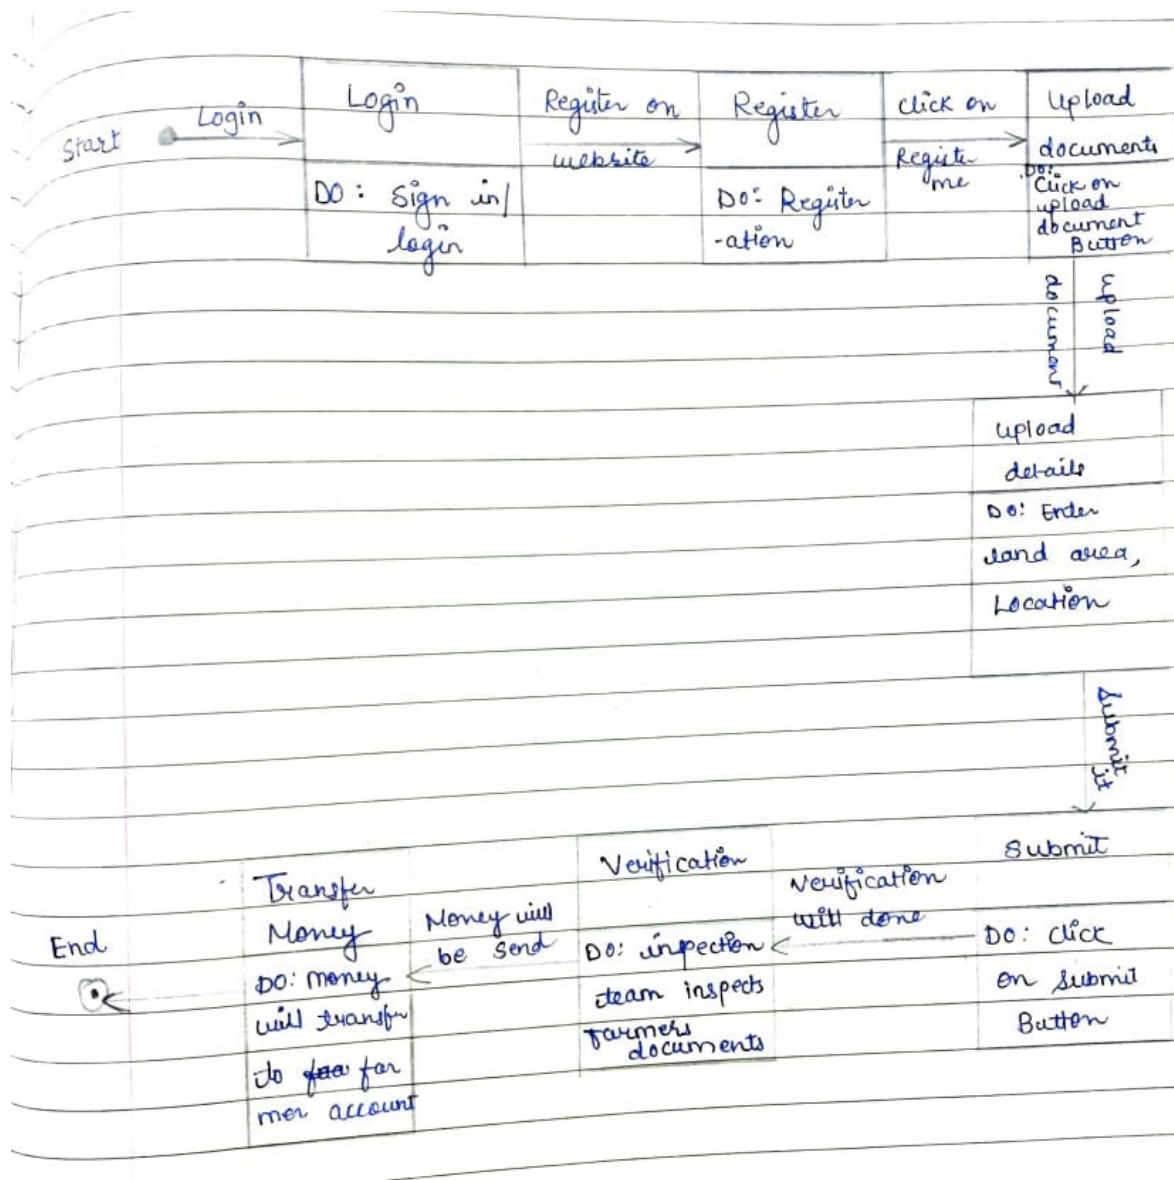 Start
Login
Login
DO: Sign in/
login
Register on
website
Register
DO: Register
-ation
click on
Register
me
Upload
documents
DO:
Click on
upload
document
Button
upload
document
upload
details
DO: Enter
land area,
Location
Submit
it
Submit
DO: click
on submit
Button
Verification
will done
Verification
DO: inspection
team inspects
farmers
documents
Money will
be send
Transfer
Money
DO: money
will transfer
to far
mer account
End